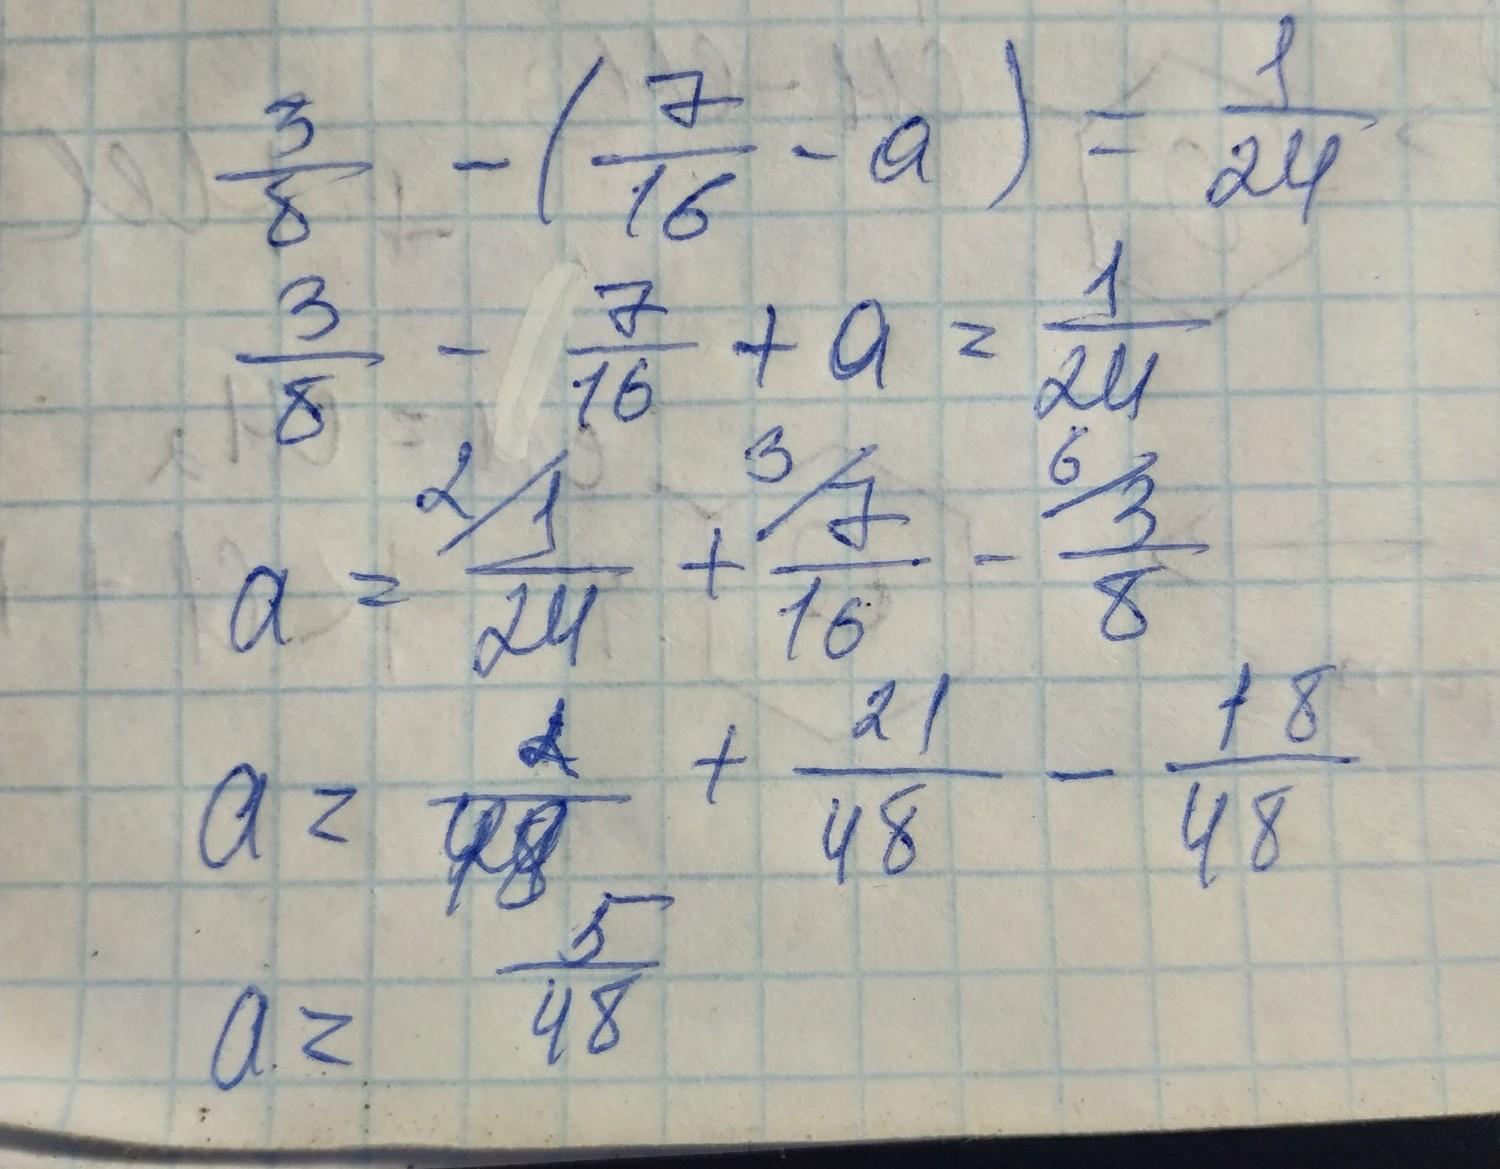 3/8 - (7/16 - a) = 1/24
3/8 - 7/16 + a = 1/24
a = 2/ 1/24 + 3/ 7/16 - 6/ 3/8
a = 2/48 + 21/48 - 18/48
a = 5/48